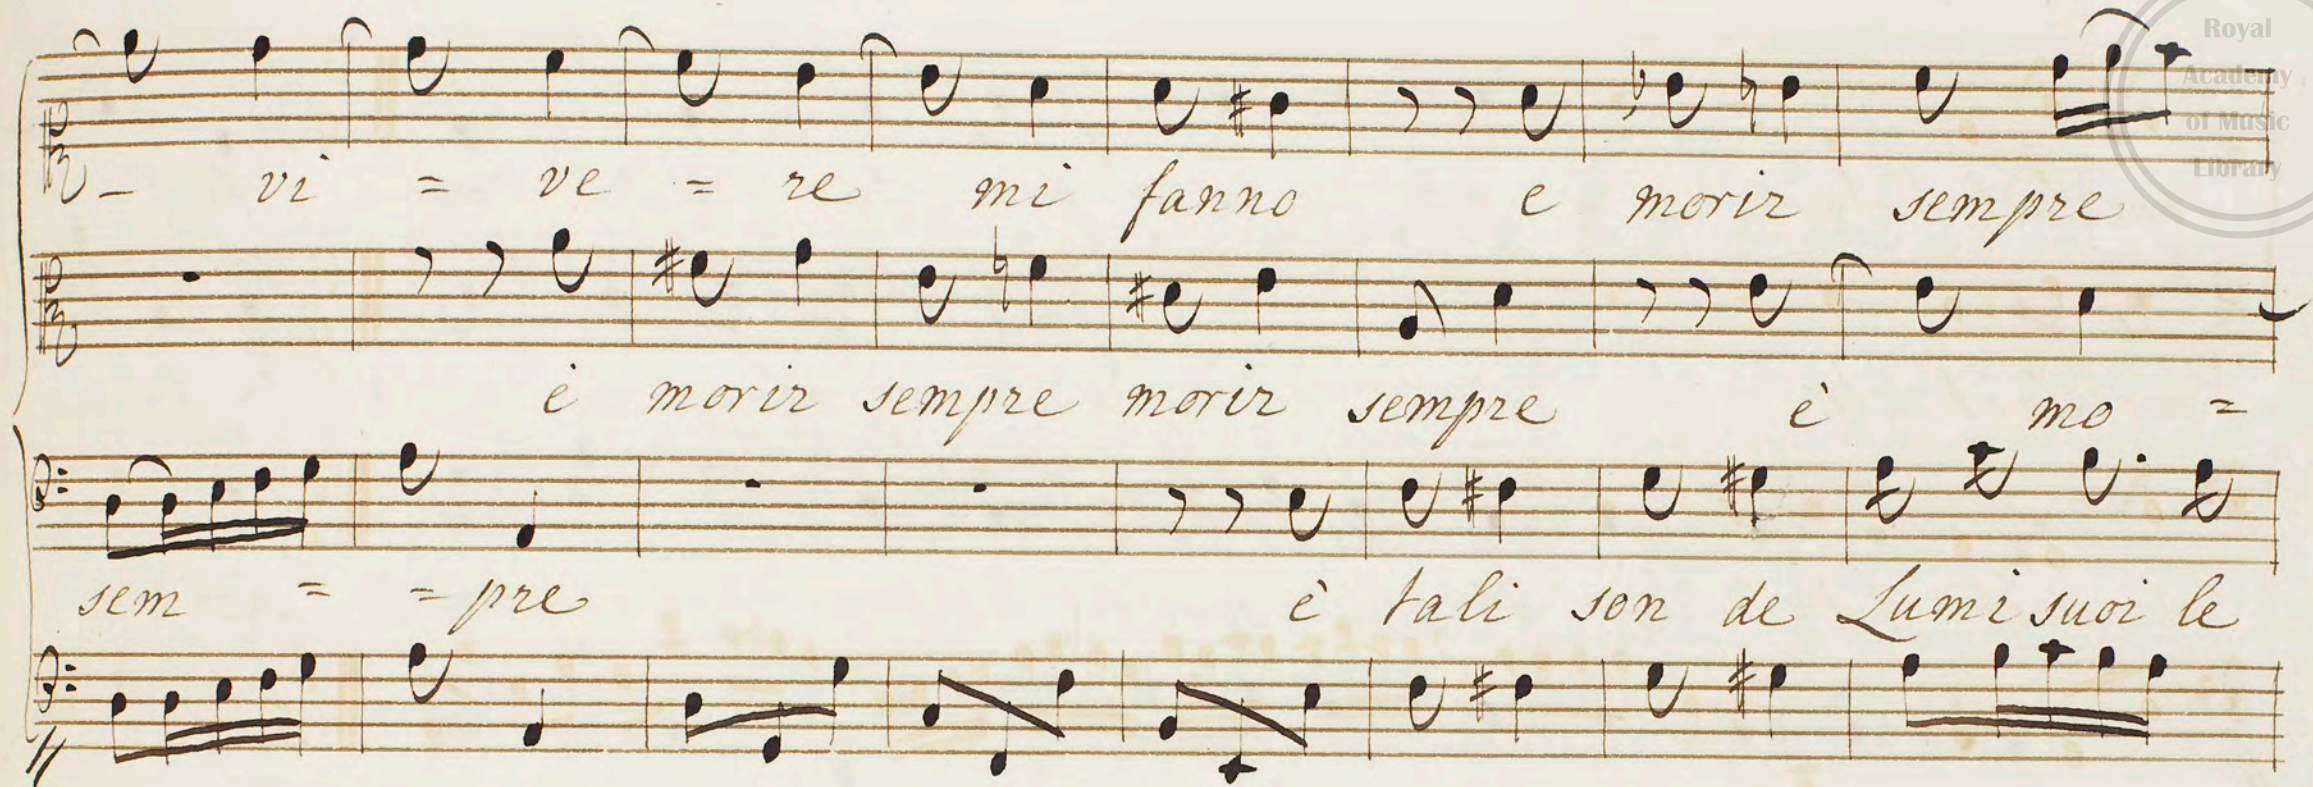 Royal
Academy
of Music
Library
- vi = ve = re mi fanno e morir sempre
è morir sempre morir sempre è mo =
sem = = pre è tali son de Lumi suoi le